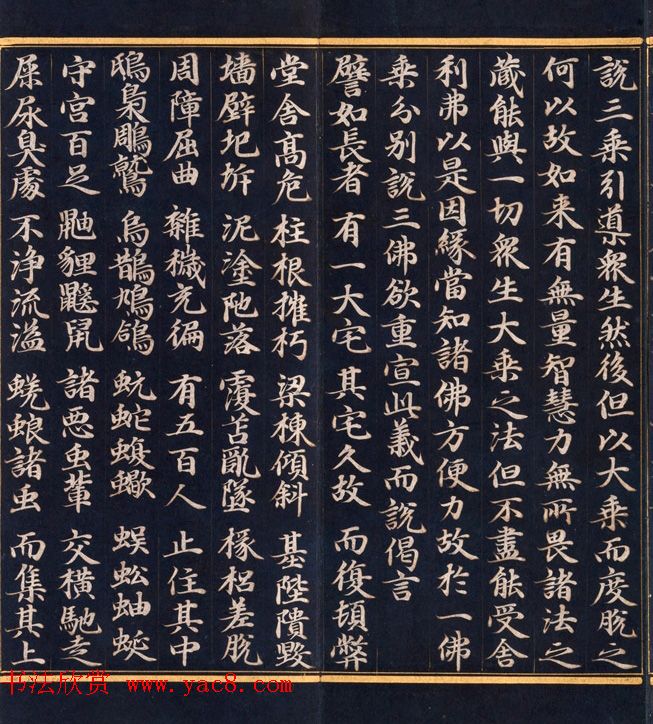 說三乘引導衆生然後但以大乘而度脫之
何以故如来有無量智慧力無所畏諸法之
蔵能與一切衆生大乘之法但不盡能受舍
利弗以是因緣當知諸佛方便力故於一佛
乘分別說三佛欲重宣此義而說偈言
譬如長者 有一大宅 其宅久故 而復頓弊
堂舍髙危 柱根摧朽 梁棟傾斜 基陛隤毀
墻壁圮坼 泥塗阤落 覆苫亂墜 椽梠差脫
周障屈曲 雜穢充徧 有五百人 止住其中
鴟梟鵰鷲 烏鵲鳩鴿 蚖蛇蝮蠍 蜈蚣蚰蜒
守宮百足 鼬貍鼷鼠 諸惡虫軰 交橫馳走
屎尿臭處 不淨流溢 蜣蜋諸虫 而集其上
书法欣赏 www.yac8.com